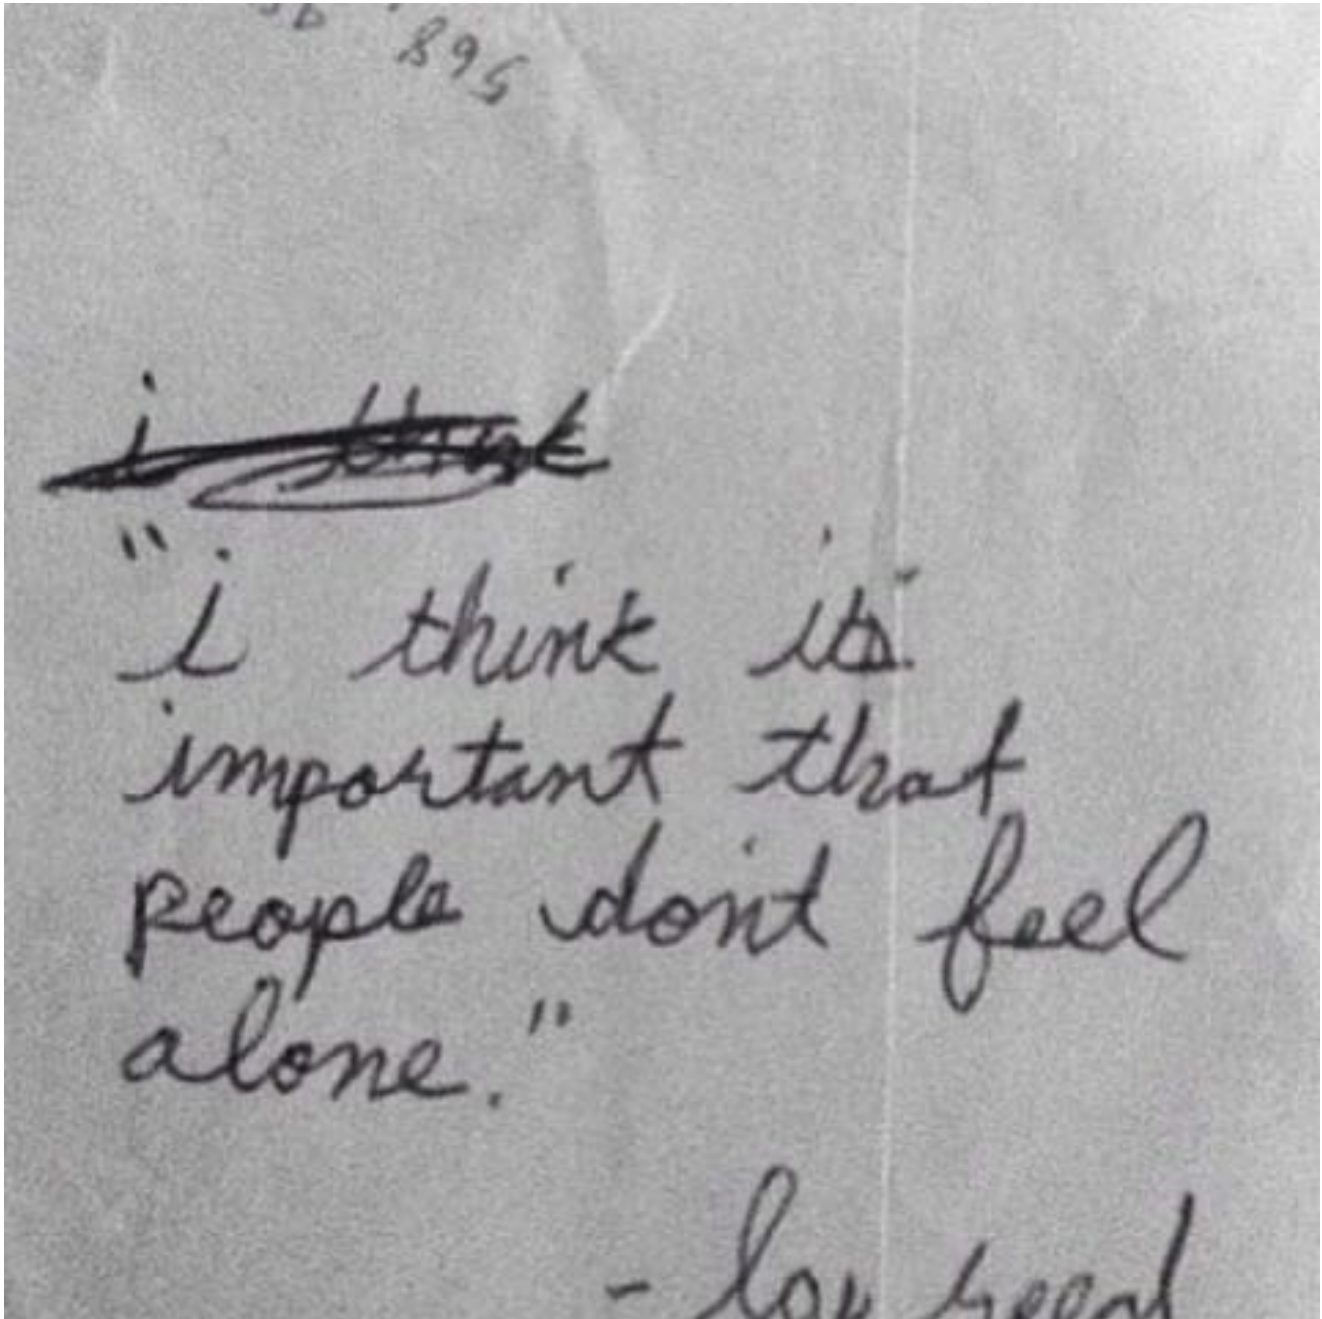 895
i think
"i think its
important that
people don't feel
alone."
- lou reed